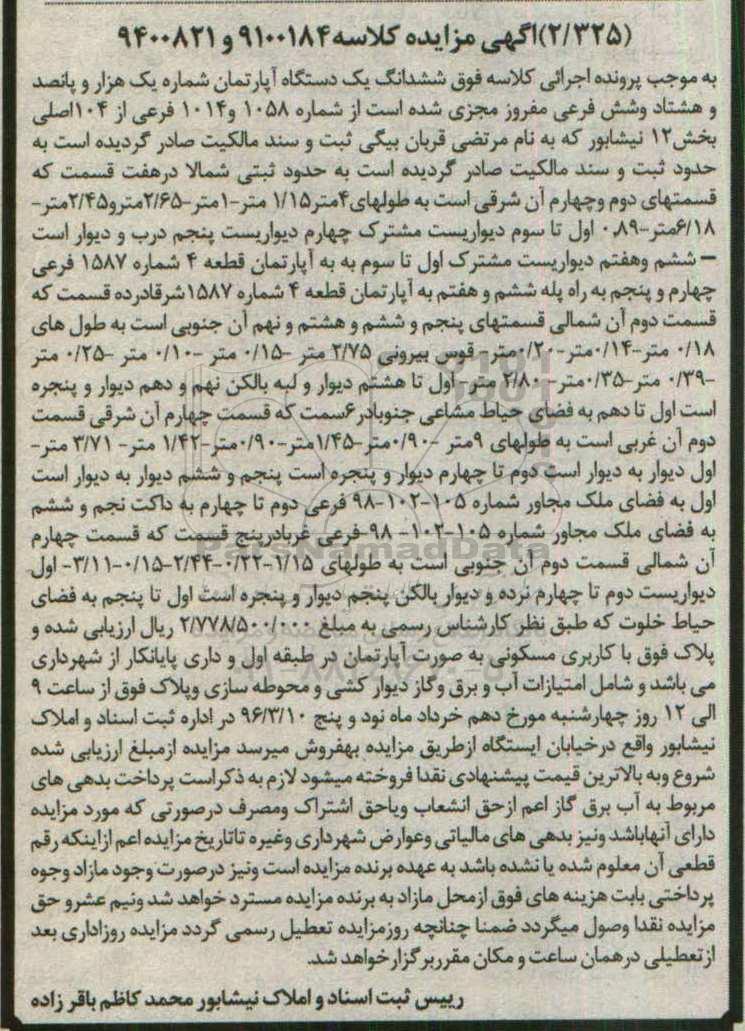 (۲/۳۲۵)آگهی مزایده کلاسه ۹۱۰۰۱۸۴ و ۹۴۰۰۸۲۱
به موجب پرونده اجرائی کلاسه فوق ششدانگ یک دستگاه آپارتمان شماره یک هزار و پانصد
و هشتاد وشش فرعی مفروز مجزی شده است از شماره ۱۰۵۸ و۱۰۱۴ فرعی از ۱۰۴اصلی
بخش۱۲ نیشابور که به نام مرتضی قربان بیگی ثبت و سند مالکیت صادر گردیده است به
حدود ثبت و سند مالکیت صادر گردیده است به حدود ثبتی شمالا درهفت قسمت که
قسمتهای دوم وچهارم آن شرقی است به طولهای۴متر۱/۱۵ متر-۱متر-۲/۶۵مترو۲/۴۵متر-
۶/۱۸متر-۰٫۸۹ اول تا سوم دیواریست مشترک چهارم دیواریست پنجم درب و دیوار است
– ششم وهفتم دیواریست مشترک اول تا سوم به به آپارتمان قطعه ۴ شماره ۱۵۸۷ فرعی
چهارم و پنجم به راه پله ششم و هفتم به آپارتمان قطعه ۴ شماره ۱۵۸۷شرقادرده قسمت که
قسمت دوم آن شمالی قسمتهای پنجم و ششم و هشتم و نهم آن جنوبی است به طول های
۰/۱۸ متر-۰/۱۴متر-۰/۲۰متر- قوس بیرونی ۲/۷۵ متر -۰/۱۵ متر -۰/۱۰ متر -۰/۲۵ متر
-۰/۳۹ متر-۰/۳۵متر- ۲/۸۰ متر- اول تا هشتم دیوار و لبه بالکن نهم و دهم دیوار و پنجره
است اول تا دهم به فضای حیاط مشاعی جنوبادر۶سمت که قسمت چهارم آن شرقی قسمت
دوم آن غربی است به طولهای ۹متر -۰/۹۰متر-۱/۴۵متر-۰/۹۰متر-۱/۴۲ متر- ۳/۷۱ متر-
اول دیوار به دیوار است دوم تا چهارم دیوار و پنجره است پنجم و ششم دیوار به دیوار است
اول به فضای ملک مجاور شماره ۱۰۵-۱۰۲-۹۸ فرعی دوم تا چهارم به داکت نجم و ششم
به فضای ملک مجاور شماره ۱۰۵-۱۰۲- ۹۸-فرعی غربادرپنج قسمت که قسمت چهارم
آن شمالی قسمت دوم آن جنوبی است به طولهای ۶/۱۵-۰/۲۲-۲/۴۴-۰/۱۵-۳/۱۱- اول
دیواریست دوم تا چهارم نرده و دیوار بالکن پنجم دیوار و پنجره است اول تا پنجم به فضای
حیاط خلوت که طبق نظر کارشناس رسمی به مبلغ ۲/۷۷۸/۵۰۰/۰۰۰ ریال ارزیابی شده و
پلاک فوق با کاربری مسکونی به صورت آپارتمان در طبقه اول و داری پایانکار از شهرداری
می باشد و شامل امتیازات آب و برق وگاز دیوار کشی و محوطه سازی وپلاک فوق از ساعت ۹
الی ۱۲ روز چهارشنبه مورخ دهم خرداد ماه نود و پنج ۹۶/۳/۱۰ در اداره ثبت اسناد و املاک
نیشابور واقع درخیابان ایستگاه ازطریق مزایده بهفروش میرسد مزایده ازمبلغ ارزیابی شده
شروع وبه بالاترین قیمت پیشنهادی نقدا فروخته میشود لازم به ذکراست پرداخت بدهی های
مربوط به آب برق گاز اعم ازحق انشعاب ویاحق اشتراک ومصرف درصورتی که مورد مزایده
دارای آنهاباشد ونیز بدهی های مالیاتی وعوارض شهرداری وغیره تاتاریخ مزایده اعم ازاینکه رقم
قطعی آن معلوم شده یا نشده باشد به عهده برنده مزایده است ونیز درصورت وجود مازاد وجوه
پرداختی بابت هزینه های فوق ازمحل مازاد به برنده مزایده مسترد خواهد شد ونیم عشرو حق
مزایده نقدا وصول میگردد ضمنا چنانچه روزمزایده تعطیل رسمی گردد مزایده روزاداری بعد
ازتعطیلی درهمان ساعت و مکان مقرربرگزارخواهد شد.
رییس ثبت اسناد و املاک نیشابور محمد کاظم باقر زاده
ParsNamadData